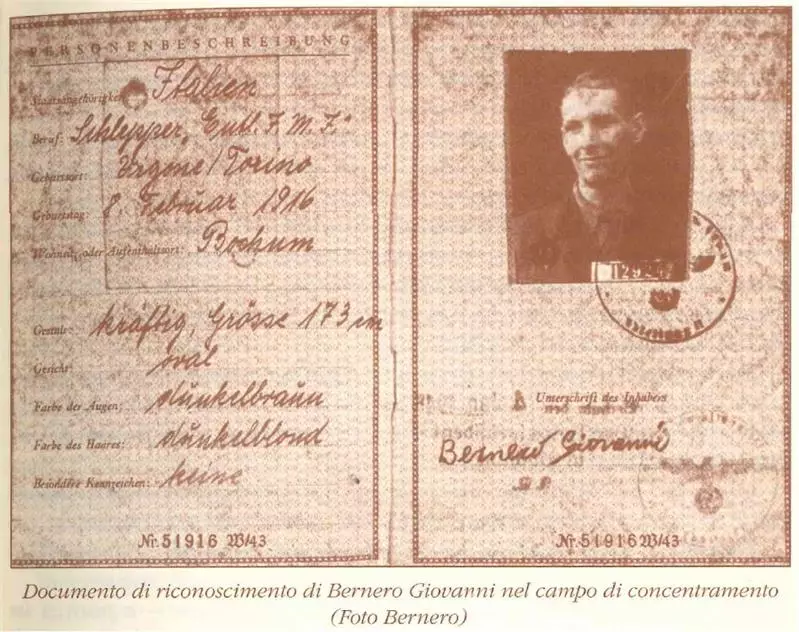 PERSONENBESCHREIBUNG
Staatsangehörigkeit: Italien
Beruf: Schlepper,
Geburtsort: /Torino
Geburtstag: 8. Februar 1916
Wohnsitz oder Aufenthaltsort: Bochum
Gestalt: kräftig, Grösse 173
Gesicht: oval
Farbe der Augen: dunkelbraun
Farbe des Haares: dunkelblond
Besondere Kennzeichen: keine
Nr. 51916 W/43
Unterschrift des Inhabers
Bernero Giovanni
Nr. 51916 W/43
Documento di riconoscimento di Bernero Giovanni nel campo di concentramento
(Foto Bernero)